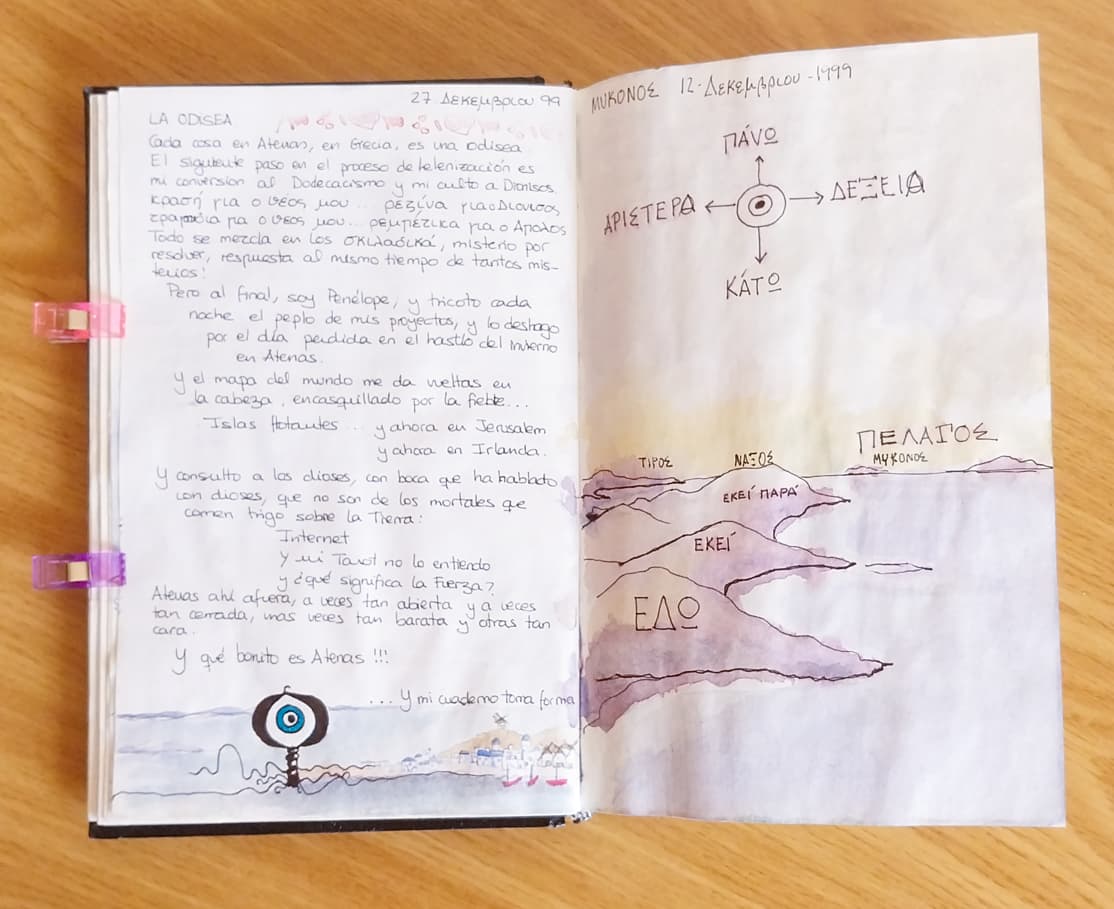 27 Δεκεμβριου 99
LA ODISEA
Cada cosa en Atenas, en Grecia, es una odisea
El siguiente paso en el proceso de helenización es
mi conversion al Dodecacismo y mi culto a Dionisos.
κραση για ο θεος μου... ρεζίνα για ο Διονισος
τραγουδια για ο θεος μου... ρεμπετικα για ο Απολος
Todo se mezcla en los σκιλαδικά, misterio por
resolver, respuesta al mismo tiempo de tantos mis-
terios!
Pero al final, soy Penélope, y tricoto cada
noche el peplo de mis proyectos, y lo deshago
por el día perdida en el hastío del invierno
en Atenas.
Y el mapa del mundo me da vueltas en
la cabeza, encasquillado por la fiebre...
Islas flotantes... y ahora en Jerusalem
y ahora en Irlanda.
Y consulto a los dioses, con boca que ha hablado
con dioses, que no son de los mortales que
comen trigo sobre la Tierra:
Internet
Y mi Tarot no lo entiendo
y ¿qué significa la Fuerza?
Atenas ahí afuera, a veces tan abierta y a veces
tan cerrada, unas veces tan barata y otras tan
cara.
Y qué bonito es Atenas !!!
...Y mi cuaderno toma forma
ΜΥΚΟΝΟΣ 12·Δεκεμβριου-1999
ΠΆΝΩ
ΑΡΙΣΤΕΡΑ
ΔΕΞΕΙΑ
ΚΆΤΩ
ΠΕΛΑΓΟΣ
ΤΙΡΟΣ
ΝΑΞΟΣ
ΜΥΚΟΝΟΣ
ΕΚΕΊ ΠΑΡΑ'
ΕΚΕΊ
ΕΔΩ